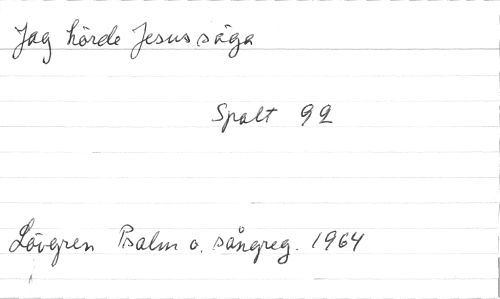 Jag hörde Jesus säga
Spalt 92
Lövgren Psalm o. sångreg. 1964